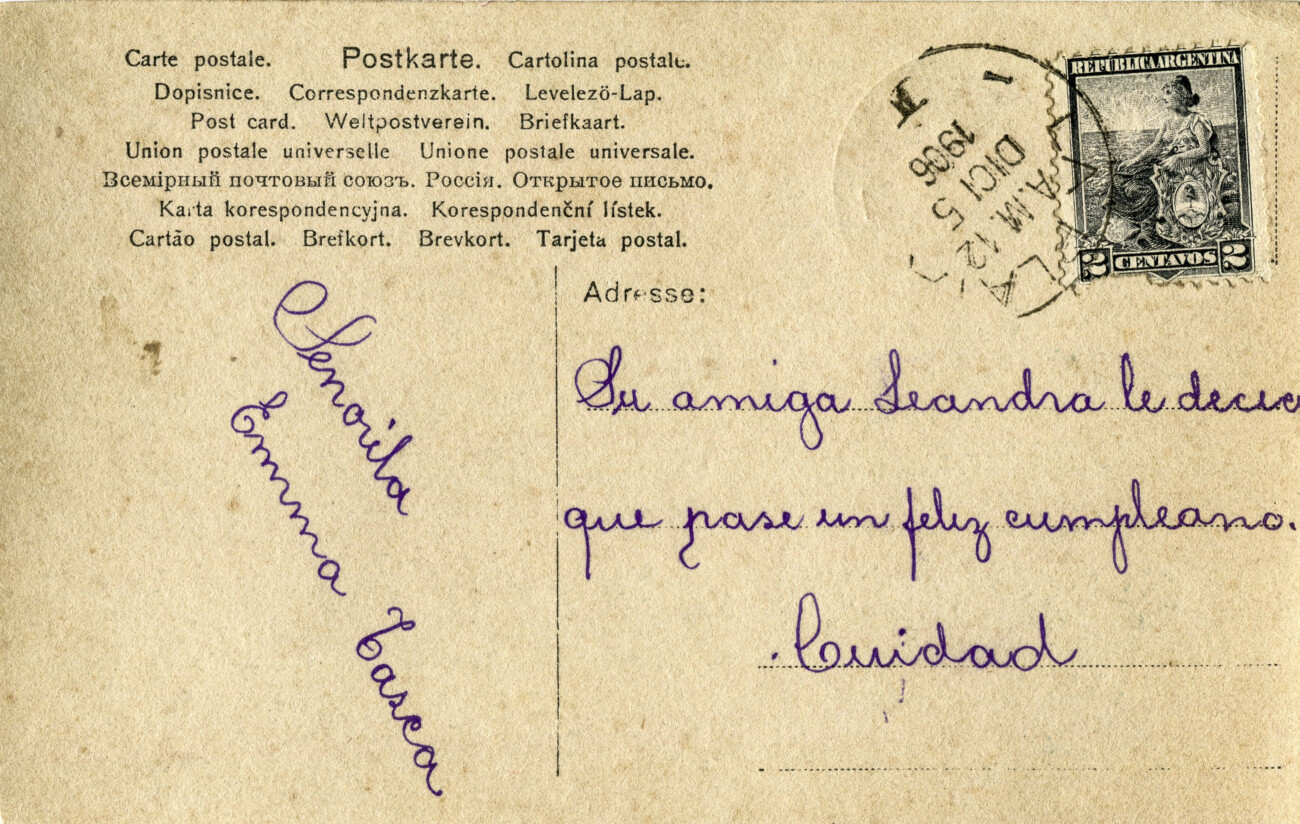 Carte postale. Postkarte. Cartolina postale.
Dopisnice. Correspondenzkarte. Levelező-Lap.
Post card. Weltpostverein. Briefkaart.
Union postale universelle Unione postale universale.
Всемірный почтовый союзъ. Россія. Открытое письмо.
Karta korespondencyjna. Korespondenční lístek.
Cartão postal. Brefkort. Brevkort. Tarjeta postal.
REPÚBLICA ARGENTINA
2 CENTAVOS 2
A.M. 12
DICI 5
1906
Adresse:
Senorita
Emma Tasca
Su amiga Leandra le
que pase un feliz cumpleano.
Cuidad